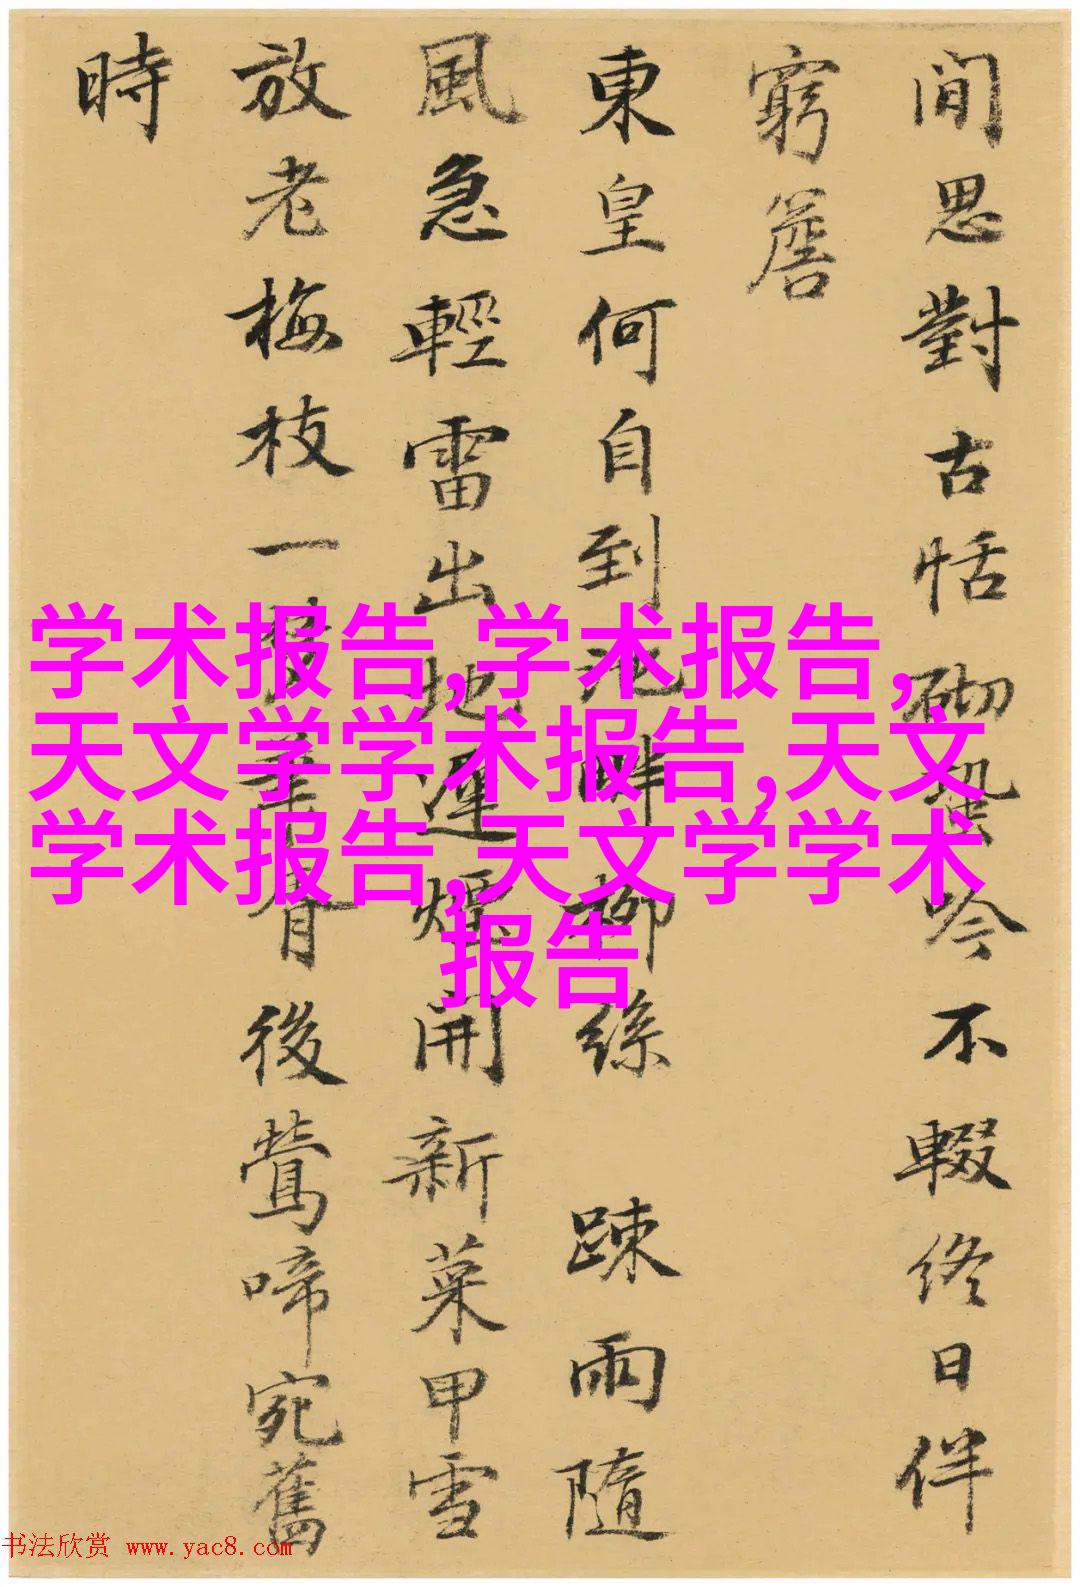 閒思對古恬砌蛩吟不輟終日伴
窮簷
東皇何自到池畔柳絲踈雨隨
風急輕雷出地遲煙開新菜甲雪
放老梅枝一春後鶯啼宛舊
時
学术报告,学术报告,
天文学学术报告,天文
学术报告,天文学学术
报告
书法欣赏 www.yac8.com